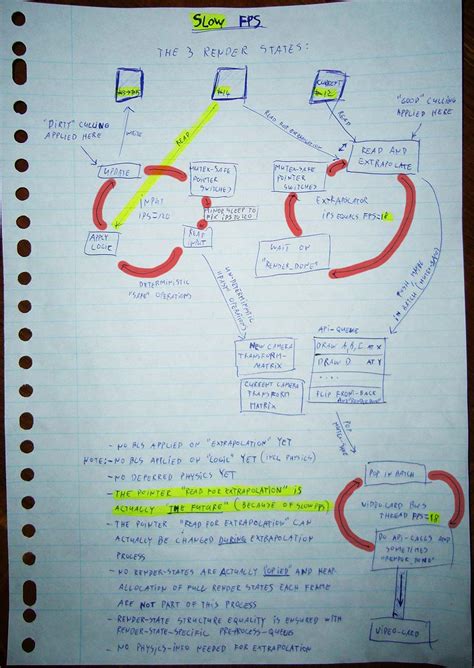 SLOW FPS
THE 3 RENDER STATES:
"DIRTY" CULLING
APPLIED HERE
"GOOD" CULLING
APPLIED HERE
WRITE
READ
READ FOR EXTRAPOLATION
READ
UPDATE
MUTEX-SAFE
POINTER
SWITCHES
MUTEX-SAFE
POINTER
SWITCHES
READ AND
EXTRAPOLATE
INPUT
IPS=120
MINOR SLEEP TO
FIX IPS TO 120
EXTRAPOLATOR
IPS EQUALS FPS=18
APPLY
LOGIC
READ
INPUT
WAIT ON
"RENDER_DONE"
DETERMINISTIC
"SAFE" OPERATIONS
UN-DETERMINISTIC
OPERATIONS
PUSH
IN BATCH
NEW CAMERA
TRANSFORM-
MATRIX
CURRENT CAMERA
TRANSFORM
MATRIX
API-QUEUE
DRAW A, B, C AT X
DRAW D AT Y
. . .
FLIP FRONT-BACK
POP
POP IN BATCH
VIDEO-CARD BUS
THREAD FPS=18
DO API-CALLS AND
SOMETIMES
"RENDER DONE"
VIDEO-CARD
- NO BCS APPLIED ON "EXTRAPOLATION" YET
NOTE: - NO BCS APPLIED ON "LOGIC" YET (INCL PHYSICS)
- NO DEFERRED PHYSICS YET
- THE POINTER "READ FOR EXTRAPOLATION" IS
ACTUALLY THE FUTURE" (BECAUSE OF SLOW FPS)
- THE POINTER "READ FOR EXTRAPOLATION" CAN
ACTUALLY BE CHANGED DURING EXTRAPOLATION
PROCESS
- NO RENDER-STATES ARE ACTUALLY COPIED" AND HEAP
ALLOCATION OF FULL RENDER STATES EACH FRAME
ARE NOT PART OF THIS PROCESS
- RENDER-STATE STRUCTURE EQUALITY IS ENSURED WITH
RENDER-STATE-SPECIFIC PRE-PROCESS-QUEUE
- NO PHYSICS-INFO NEEDED FOR EXTRAPOLATION